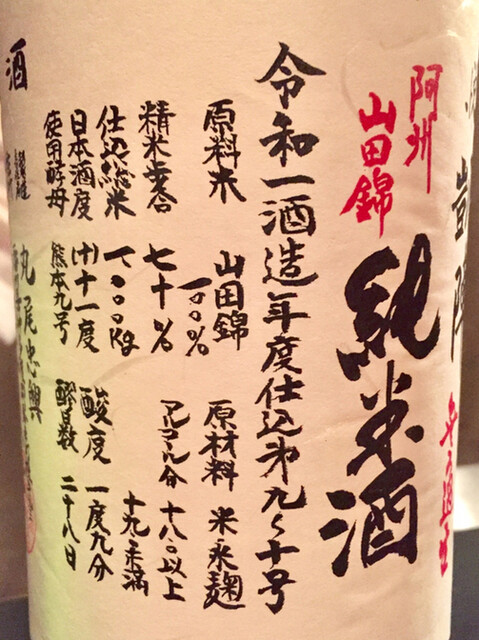 凱陣
無濾過生
阿州
山田錦
純米酒
令和一酒造年度仕込第九〜十号
原料米 山田錦
一〇〇%
精米歩合 七十%
仕込総米 一〇〇〇kg
日本酒度 (+)十一度
使用酵母 熊本九号
原材料 米米麹
アルコール分 十八.〇以上
十九.〇未満
酸度 一度九分
醪日数 二十八日
酒
丸尾忠興